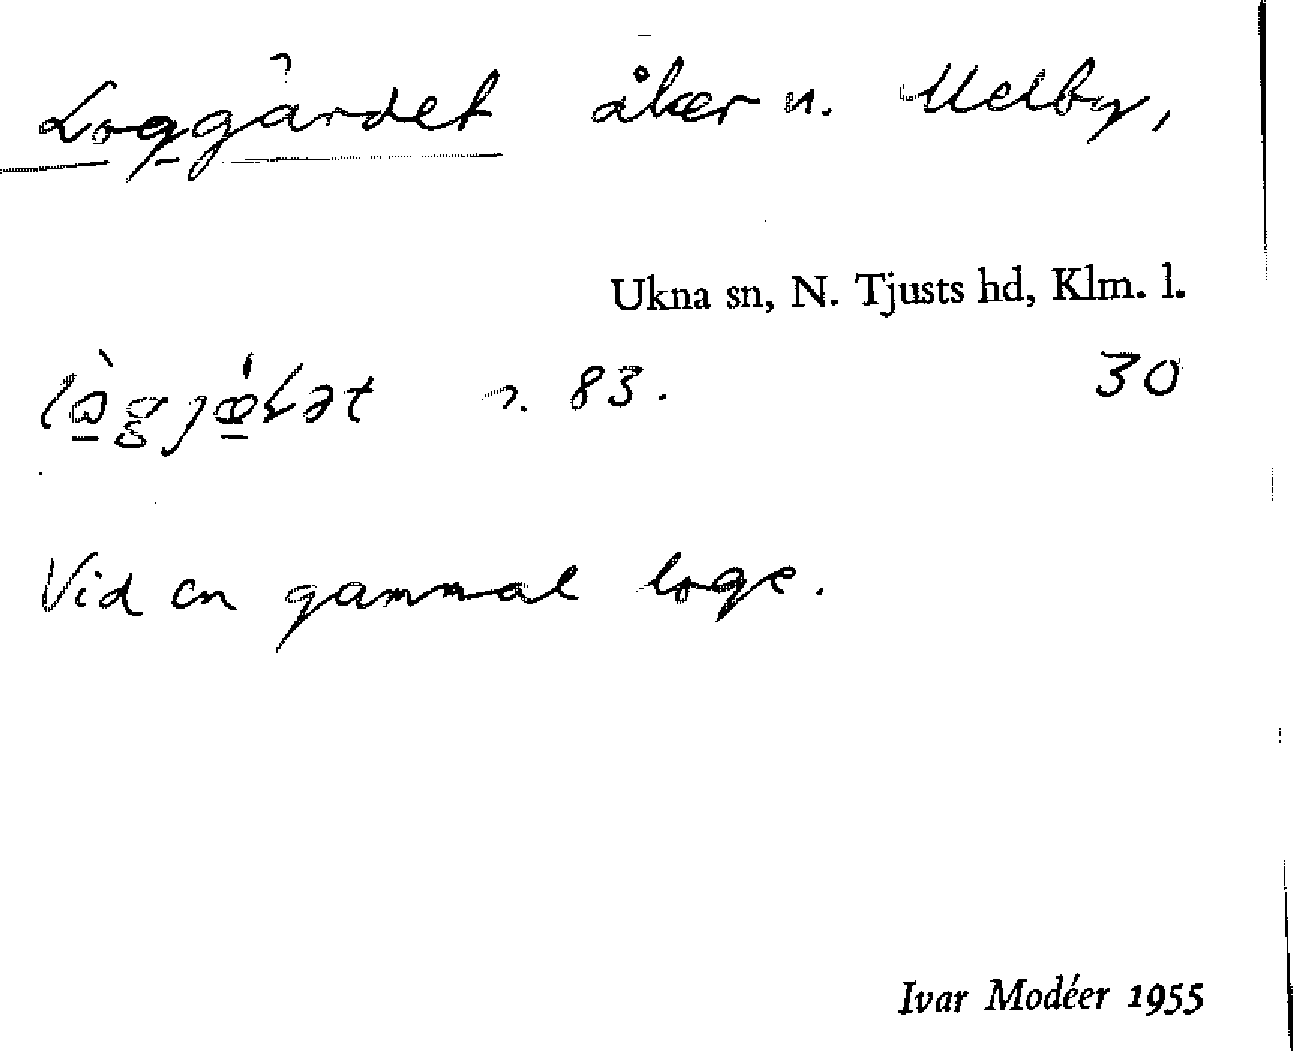 Loggärdet åker n. Melby,
Ukna sn, N. Tjusts hd, Klm. l.
n. 83. 30
Vid en gammal loge.
Ivar Modéer 1955